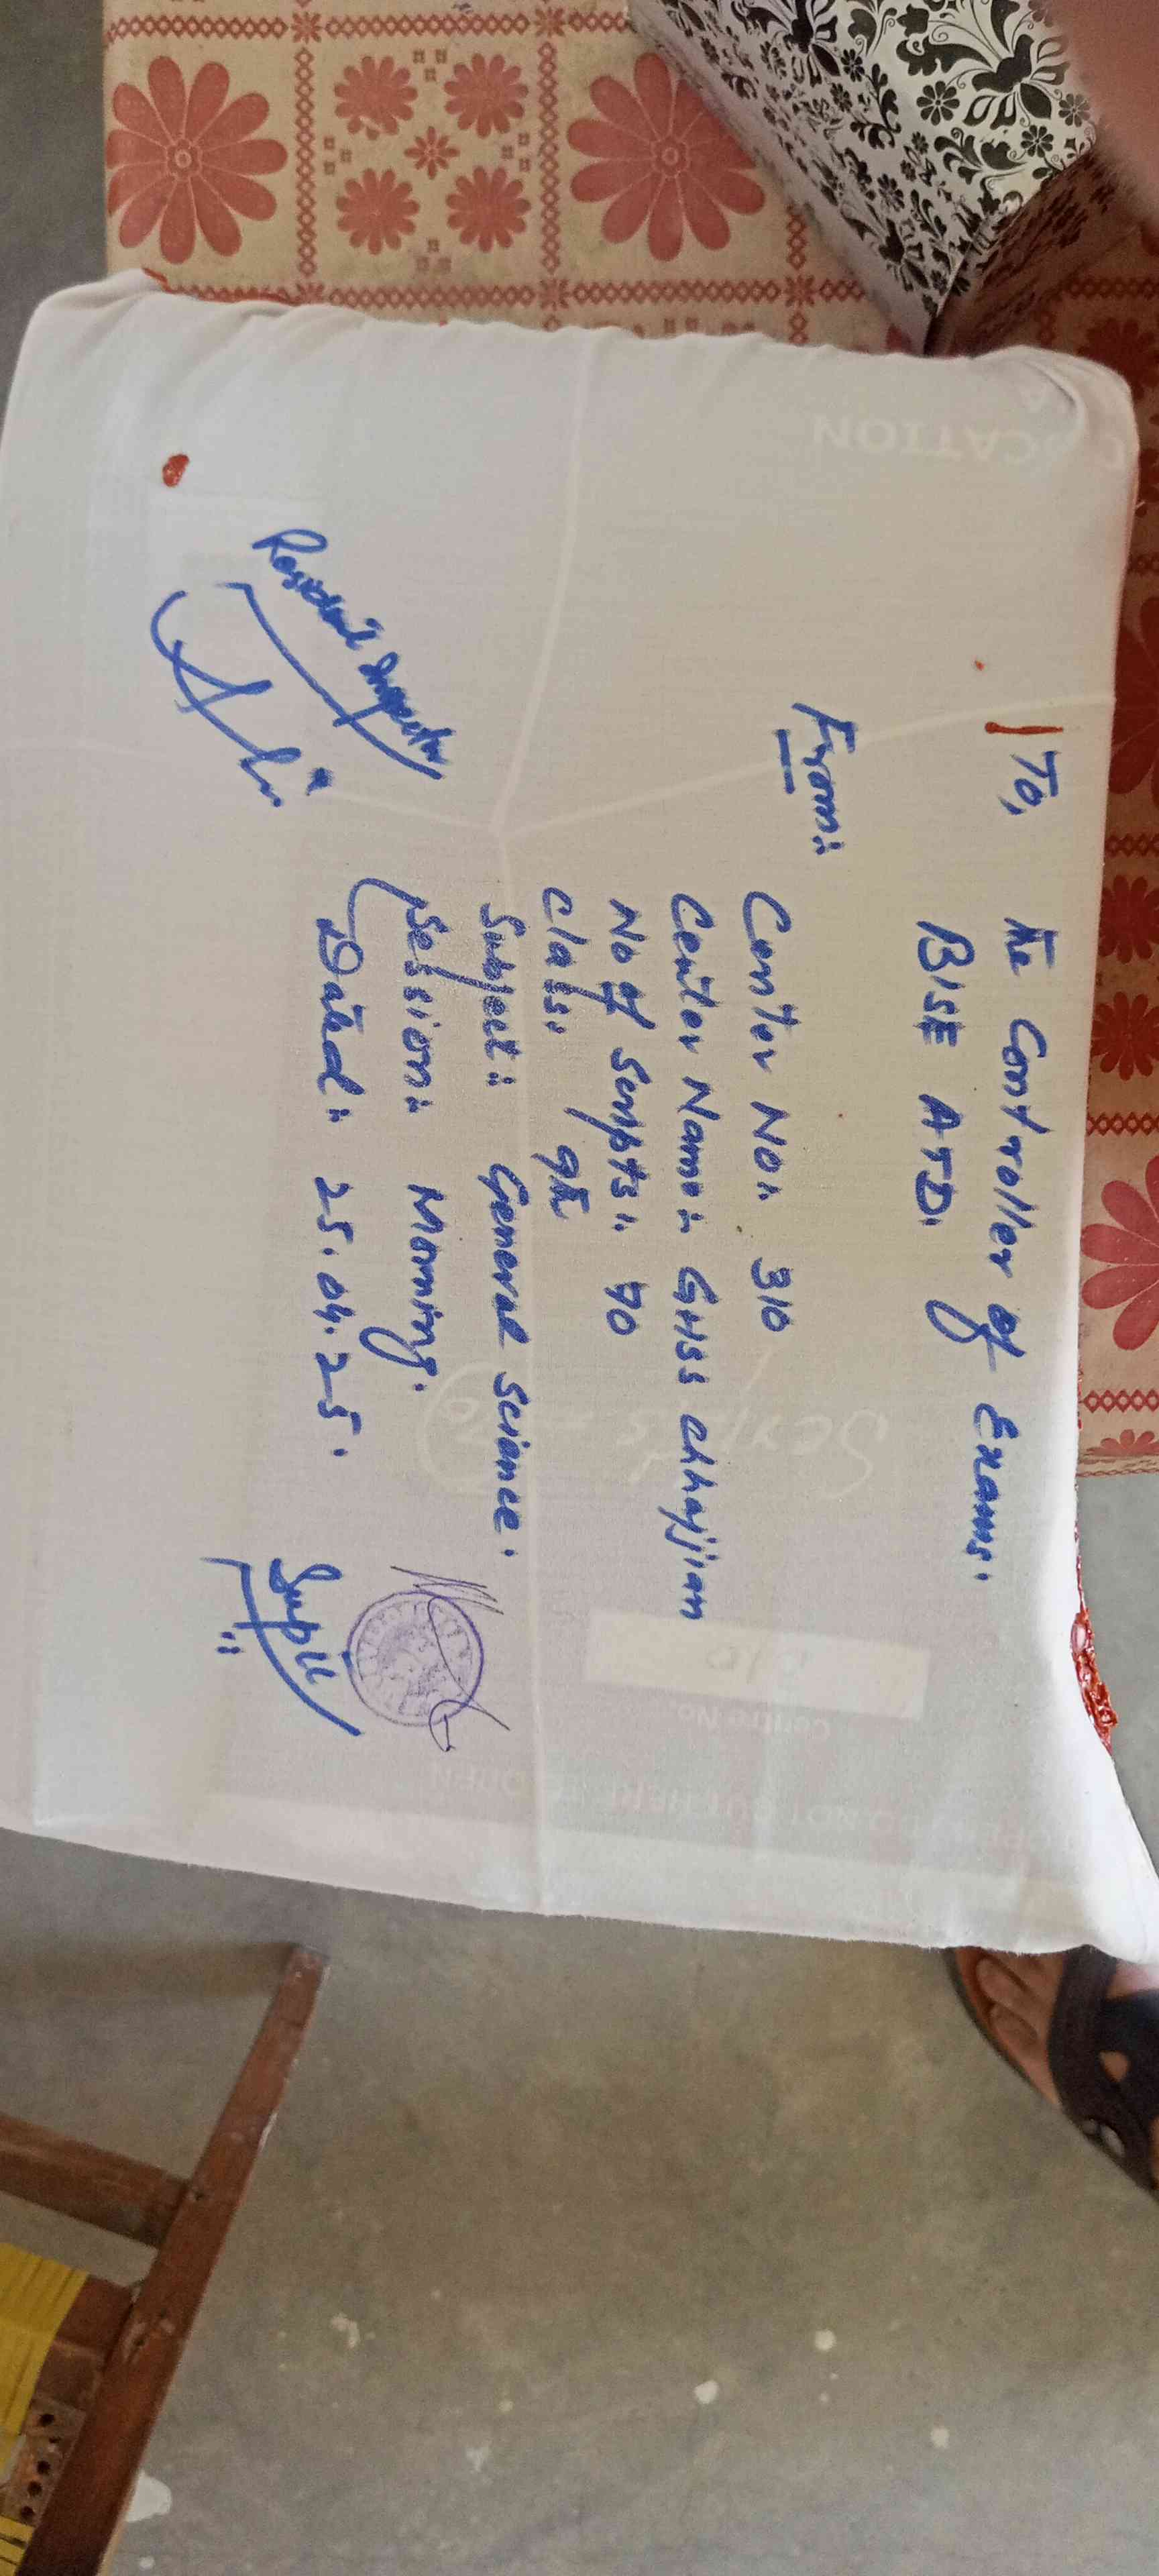 To,
The Controller of Exams.
BISE ATD.
From:
Center No: 310
Center Name: GHSS Chhajjian
No of Scripts: 70
Class: 9th
Subject: General Science.
Session: Morning.
Dated: 25.04.25.
Resident Inspector
Supdt
CATION
Centre No
DO NOT CUT HERE
OPEN